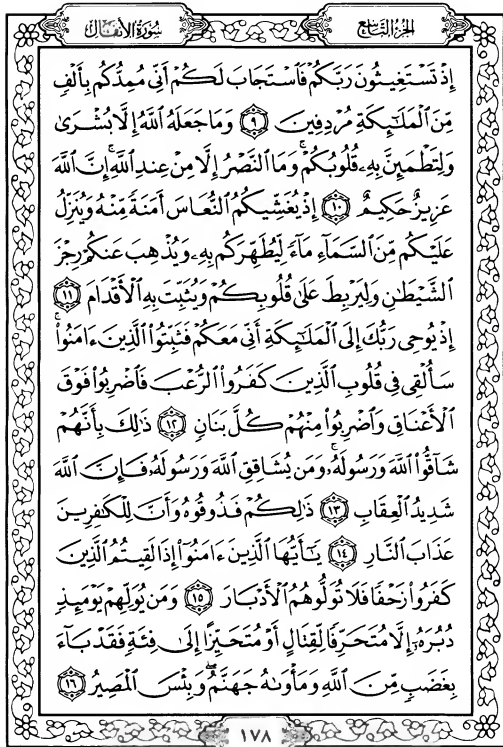 الجزء التاسع
سورة الأنفال
إِذْ تَسْتَغِيثُونَ رَبَّكُمْ فَٱسْتَجَابَ لَكُمْ أَنِّى مُمِدُّكُم بِأَلْفٍ
مِّنَ ٱلْمَلَـٰٓئِكَةِ مُرْدِفِينَ ٩ وَمَا جَعَلَهُ ٱللَّهُ إِلَّا بُشْرَىٰ
وَلِتَطْمَئِنَّ بِهِۦ قُلُوبُكُمْ ۚ وَمَا ٱلنَّصْرُ إِلَّا مِنْ عِندِ ٱللَّهِ ۚ إِنَّ ٱللَّهَ
عَزِيزٌ حَكِيمٌ ١٠ إِذْ يُغَشِّيكُمُ ٱلنُّعَاسَ أَمَنَةً مِّنْهُ وَيُنَزِّلُ
عَلَيْكُم مِّنَ ٱلسَّمَآءِ مَآءً لِّيُطَهِّرَكُم بِهِۦ وَيُذْهِبَ عَنكُمْ رِجْزَ
ٱلشَّيْطَـٰنِ وَلِيَرْبِطَ عَلَىٰ قُلُوبِكُمْ وَيُثَبِّتَ بِهِ ٱلْأَقْدَامَ ١١
إِذْ يُوحِى رَبُّكَ إِلَى ٱلْمَلَـٰٓئِكَةِ أَنِّى مَعَكُمْ فَثَبِّتُوا۟ ٱلَّذِينَ ءَامَنُوا۟ ۚ
سَأُلْقِى فِى قُلُوبِ ٱلَّذِينَ كَفَرُوا۟ ٱلرُّعْبَ فَٱضْرِبُوا۟ فَوْقَ
ٱلْأَعْنَاقِ وَٱضْرِبُوا۟ مِنْهُمْ كُلَّ بَنَانٍ ١٢ ذَٰلِكَ بِأَنَّهُمْ
شَآقُّوا۟ ٱللَّهَ وَرَسُولَهُۥ ۚ وَمَن يُشَاقِقِ ٱللَّهَ وَرَسُولَهُۥ فَإِنَّ ٱللَّهَ
شَدِيدُ ٱلْعِقَابِ ١٣ ذَٰلِكُمْ فَذُوقُوهُ وَأَنَّ لِلْكَـٰفِرِينَ
عَذَابَ ٱلنَّارِ ١٤ يَـٰٓأَيُّهَا ٱلَّذِينَ ءَامَنُوٓا۟ إِذَا لَقِيتُمُ ٱلَّذِينَ
كَفَرُوا۟ زَحْفًا فَلَا تُوَلُّوهُمُ ٱلْأَدْبَارَ ١٥ وَمَن يُوَلِّهِمْ يَوْمَئِذٍ
دُبُرَهُۥٓ إِلَّا مُتَحَرِّفًا لِّقِتَالٍ أَوْ مُتَحَيِّزًا إِلَىٰ فِئَةٍ فَقَدْ بَآءَ
بِغَضَبٍ مِّنَ ٱللَّهِ وَمَأْوَىٰهُ جَهَنَّمُ ۖ وَبِئْسَ ٱلْمَصِيرُ ١٦
١٧٨